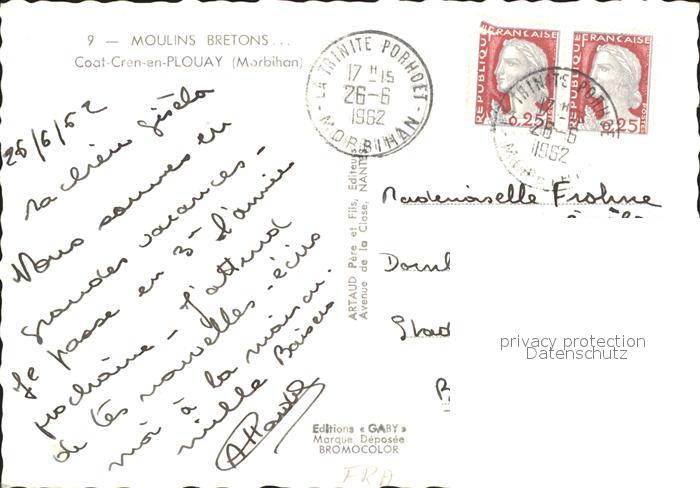 9 — MOULINS BRETONS...
Coat-Cren-en-PLOUAY (Morbihan)
LA TRINITE PORHOET
17 H 15
26-6
1962
MORBIHAN
REPUBLIQUE FRANCAISE
0,25
REPUBLIQUE FRANCAISE
0,25
LA TRINITE PORHOET
17 H
26-6
1962
26/6/62
Ma chère Gisela
Nous sommes en
grandes vacances -
Je passe en 3e l'année
prochaine - J'attend
de tes nouvelles - écris
moi à la maison.
mille Baisers
ARTAUD Père et Fils, Editeurs
Avenue de la Close, NANTES
Mademoiselle Frohne
privacy protection
Datenschutz
Editions « GABY »
Marque Déposée
BROMOCOLOR
FRA